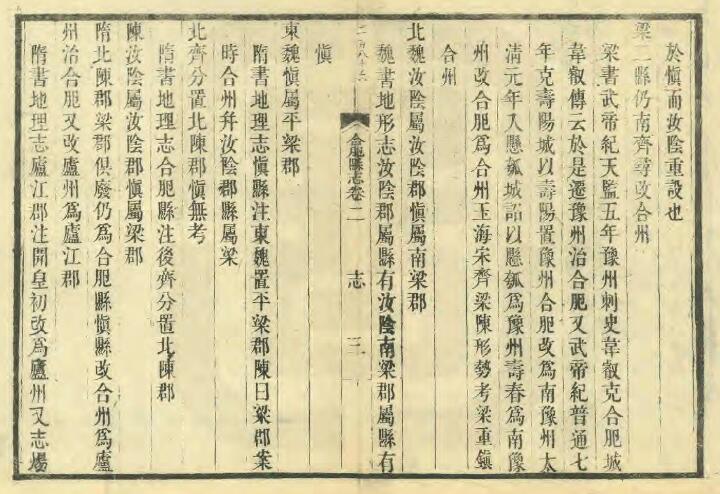 於慎而汝陰重設也
梁二縣仍南齊尋改合州
梁書武帝紀天監五年豫州刺史韋叡克合肥城
韋叡傳云於是遷豫州治合肥又武帝紀普通七
年克壽陽城以壽陽置豫州合肥改爲南豫州太
清元年入懸瓠城詔以懸瓠爲豫州壽春爲南豫
州改合肥爲合州玉海宋齊梁陳形勢考梁重鎮
合州
北魏汝陰屬汝陰郡慎屬南梁郡
魏書地形志汝陰郡屬縣有汝陰南梁郡屬縣有
合肥縣志卷二 志 三
慎
東魏慎屬平梁郡
隋書地理志慎縣注東魏置平梁郡陳曰梁郡案
時合州幷汝陰郡縣屬梁
北齊分置北陳郡慎無考
隋書地理志合肥縣注後齊分置北陳郡
陳汝陰屬汝陰郡慎屬梁郡
隋北陳郡梁郡俱廢仍爲合肥縣慎縣改合州爲廬
州治合肥又改廬州爲廬江郡
隋書地理志廬江郡注開皇初改爲廬州又志煬